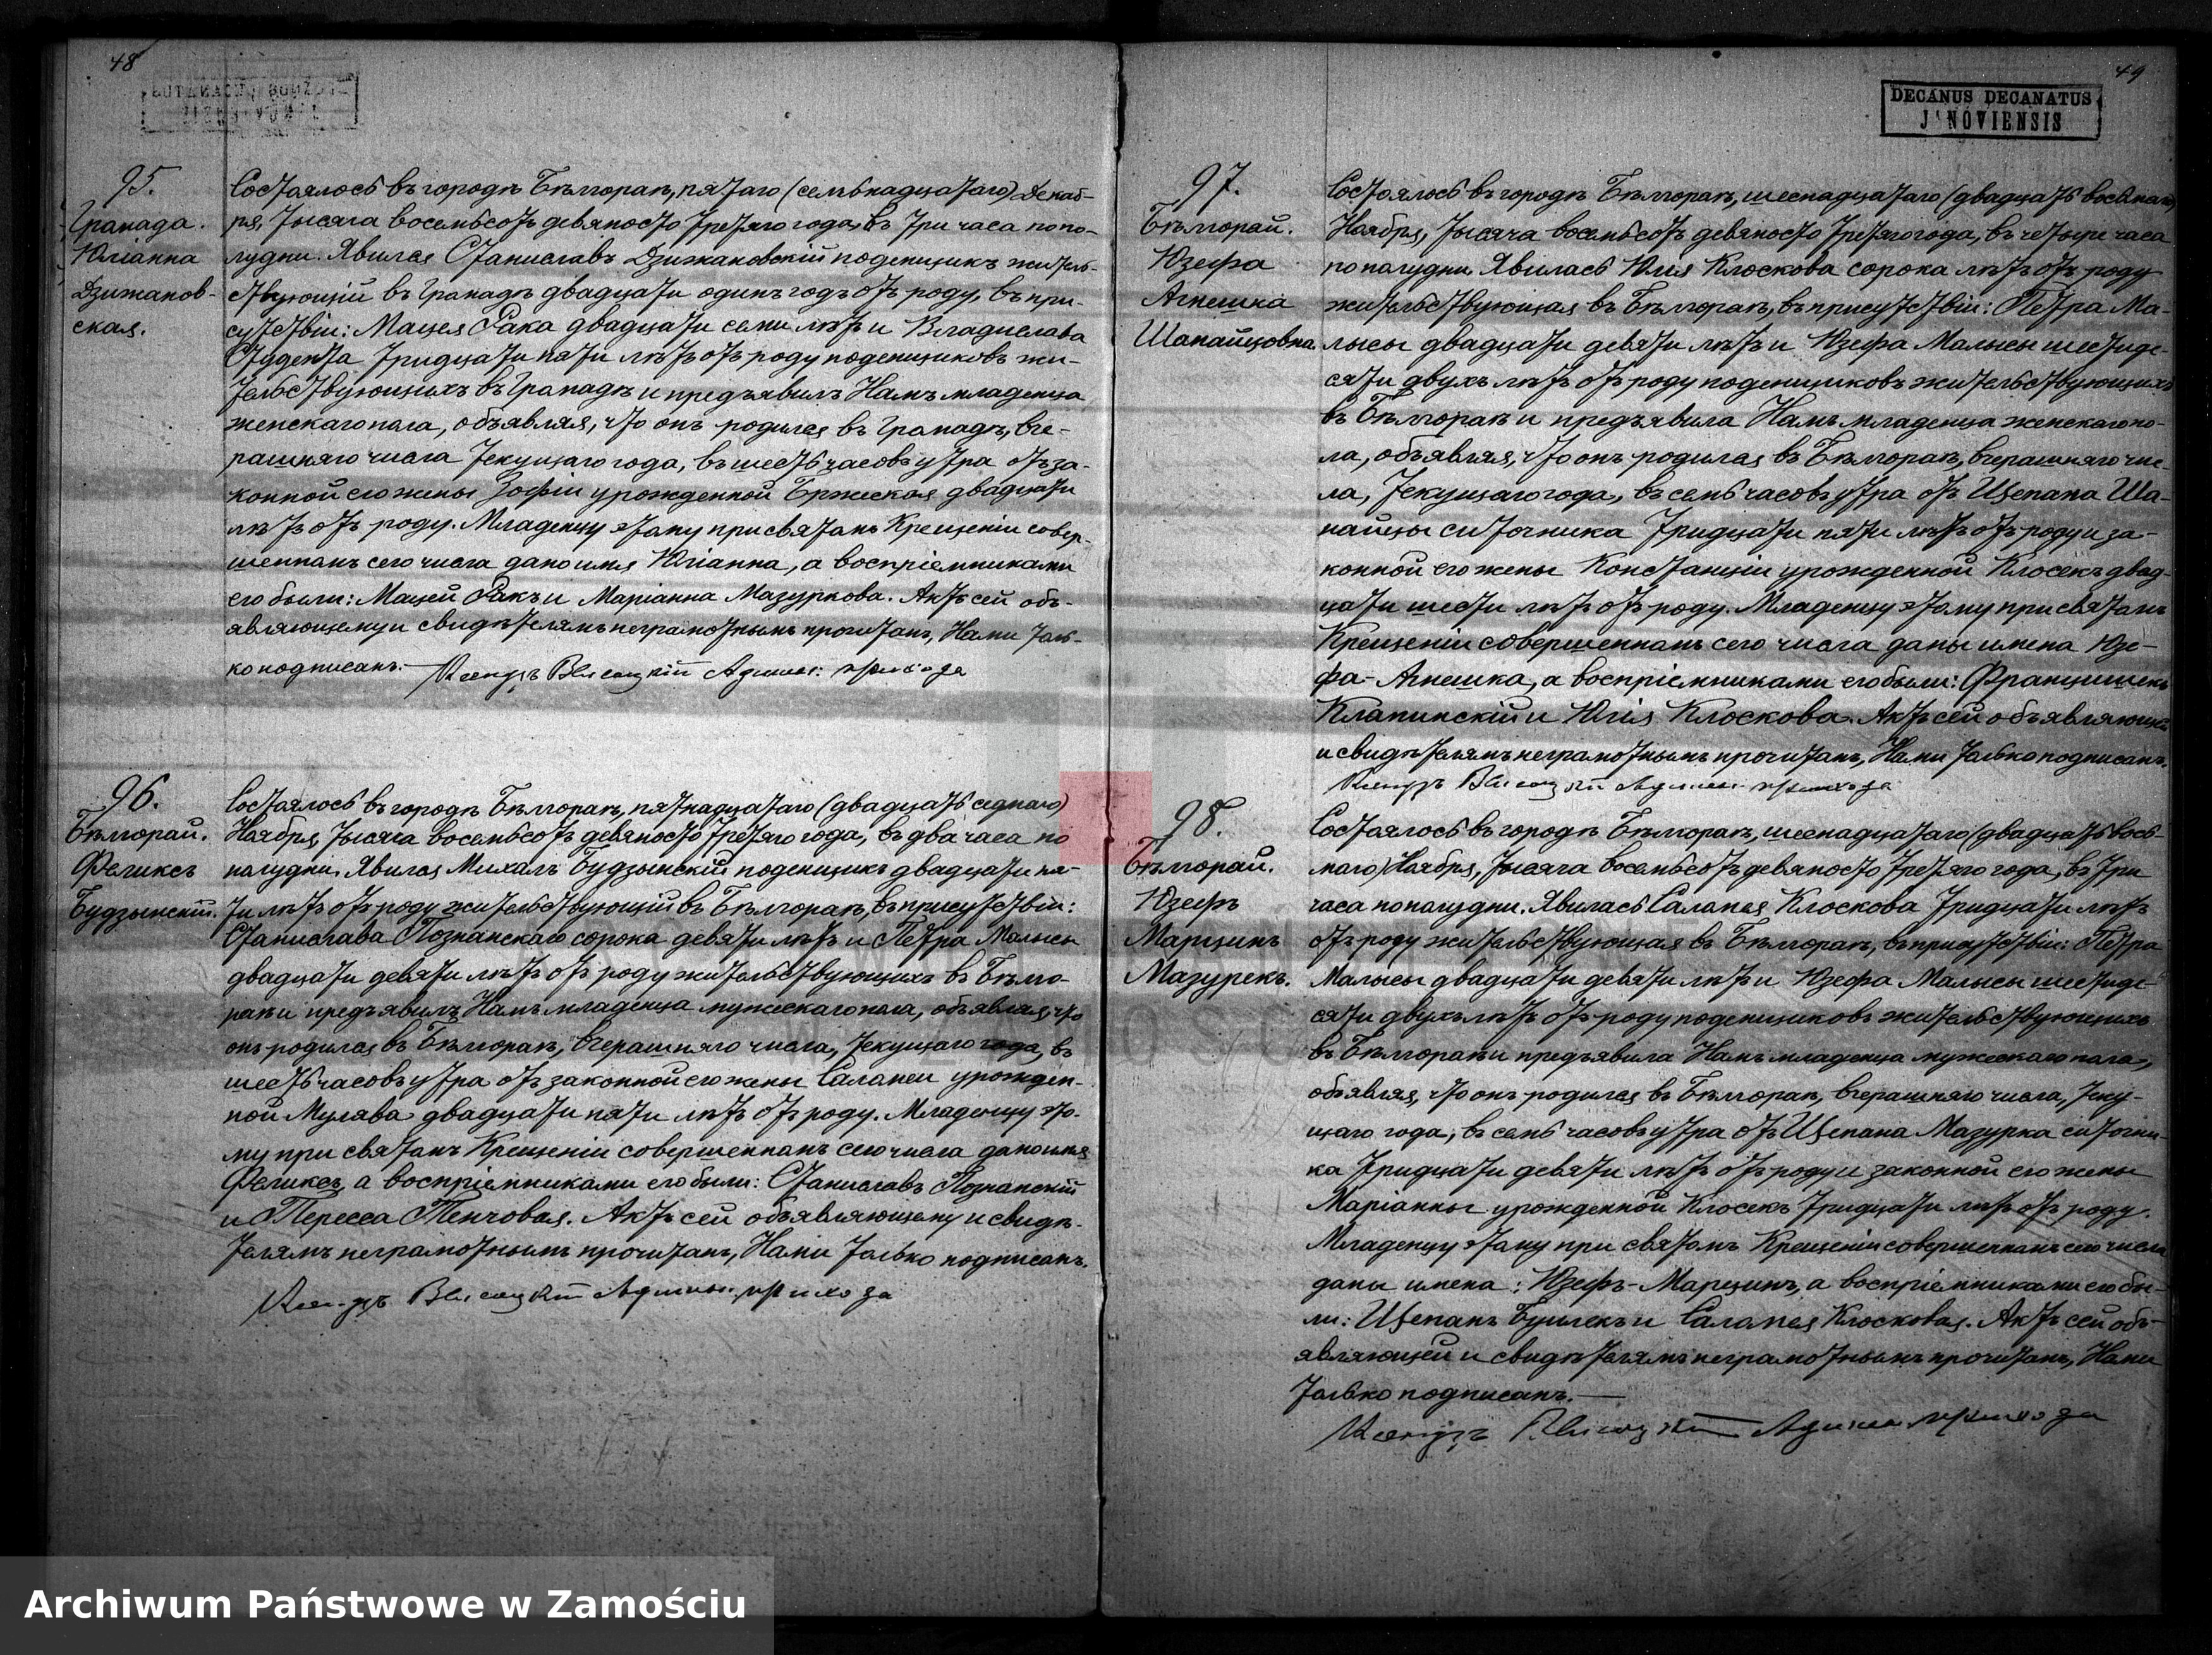 48
95.
Грамада.
Юліанна
Дзижанов-
ская.
Состоялось въ городѣ Бѣлгораѣ, пятаго (семьнадцатаго) Декаб-
ря, тысяча восемьсотъ девяносто третяго года, въ три часа попо-
лудни. Явился Станиславъ Дзижановскій поденщикъ житель-
ствующій въ Грамадѣ двадцати одинъ годъ отъ роду, въ при-
сутствіи: Мацея Рака двадцати семи лѣтъ и Владислава
Студента тридцати пяти лѣтъ отъ роду поденщиковъ жи-
тельствующихъ въ Грамадѣ и предъявилъ Намъ младенца
женскаго пола, объявляя, что онъ родился въ Грамадѣ, вче-
рашняго числа текущаго года, въ шесть часовъ утра отъ за-
конной его жены Зофіи урожденной Бржеская двадцати
лѣтъ отъ роду. Младенцу этому при святомъ Крещеніи совер-
шенномъ сего числа дано имя Юліанна, а воспріемниками
его были: Мацей Ракъ и Маріанна Мазуркова. Актъ сей объ-
являющему и свидѣтелямъ неграмотнымъ прочитанъ, Нами толь-
ко подписанъ.- Ксендзъ Высоцкій Админ: прихода
96.
Бѣлгорай.
Феликсъ
Будзынскій.
Состоялось въ городѣ Бѣлгораѣ, пятнадцатаго (двадцать седмаго)
Ноября, тысяча восемьсотъ девяносто третяго года, въ два часа по
полудни. Явился Михалъ Будзынскій поденщикъ двадцати пя-
ти лѣтъ отъ роду жительствующій въ Бѣлгораѣ, въ присутствіи:
Станислава Познанскаго сорока девяти лѣтъ и Петра Малысы
двадцати девяти лѣтъ отъ роду жительствующихъ въ Бѣлго-
раѣ и предъявилъ Намъ младенца мужескаго пола, объявляя, что
онъ родился въ Бѣлгораѣ, вчерашняго числа, текущаго года, въ
шесть часовъ утра отъ законной его жены Саломеи урожден-
ной Мулява двадцати пяти лѣтъ отъ роду. Младенцу это-
му при святомъ Крещеніи совершенномъ сего числа дано имя
Феликсъ, а воспріемниками его были: Станиславъ Познанскій
и Тересса Пенчовая. Актъ сей объявляющему и свидѣ-
телямъ неграмотнымъ прочитанъ, Нами только подписанъ.
Ксендзъ Высоцкій Админ: прихода
49
DECANUS DECANATUS
J NOVIENSIS
97.
Бѣлгорай.
Юзефа
Агнешка
Шапайцовна.
Состоялось въ городѣ Бѣлгораѣ, шеснадцатаго (двадцать восьмаго)
Ноября, тысяча восемьсотъ девяносто третяго года, въ четыре часа
по полудни. Явилась Юлія Клоскова сорока лѣтъ отъ роду
жительствующая въ Бѣлгораѣ, въ присутствіи: Петра Ма-
лысы двадцати девяти лѣтъ и Юзефа Малысы шестиде-
сяти двухъ лѣтъ отъ роду поденщиковъ жительствующихъ
въ Бѣлгораѣ и предъявила Намъ младенца женскаго по-
ла, объявляя, что онъ родился въ Бѣлгораѣ, вчерашняго чис-
ла, текущаго года, въ семь часовъ утра отъ Щепана Ша-
пайцы ситочника тридцати пяти лѣтъ отъ роду и за-
конной его жены Констанціи урожденной Клосекъ двад-
цати шести лѣтъ отъ роду. Младенцу этому при святомъ
Крещеніи совершенномъ сего числа даны имена Юзе-
фа-Агнешка, а воспріемниками его были: Францишекъ
Клапинскій и Юлія Клоскова. Актъ сей объявляющей
и свидѣтелямъ неграмотнымъ прочитанъ, Нами только подписанъ.
Ксендзъ Высоцкій Админ: прихода
98.
Бѣлгорай.
Юзефъ
Марцинъ
Мазурекъ.
Состоялось въ городѣ Бѣлгораѣ, шеснадцатаго (двадцать вось-
маго) Ноября, тысяча восемьсотъ девяносто третяго года, въ три
часа по полудни. Явилась Саломея Клоскова тридцати лѣтъ
отъ роду жительствующая въ Бѣлгораѣ, въ присутствіи: Петра
Малысы двадцати девяти лѣтъ и Юзефа Малысы шестиде-
сяти двухъ лѣтъ отъ роду поденщиковъ жительствующихъ
въ Бѣлгораѣ и предъявила Намъ младенца мужескаго пола,
объявляя, что онъ родился въ Бѣлгораѣ, вчерашняго числа, теку-
щаго года, въ семь часовъ утра отъ Щепана Мазурка ситочни-
ка тридцати девяти лѣтъ отъ роду и законной его жены
Маріанны урожденной Клосекъ тридцати лѣтъ отъ роду.
Младенцу этому при святомъ Крещеніи совершенномъ сего числа
даны имена: Юзефъ-Марцинъ, а воспріемниками его бы-
ли: Щепанъ Буцлекъ и Саломея Клосковая. Актъ сей объ-
являющей и свидѣтелямъ неграмотнымъ прочитанъ, Нами
только подписанъ.-
Ксендзъ Высоцкій Админ: прихода
Archiwum Państwowe w Zamościu